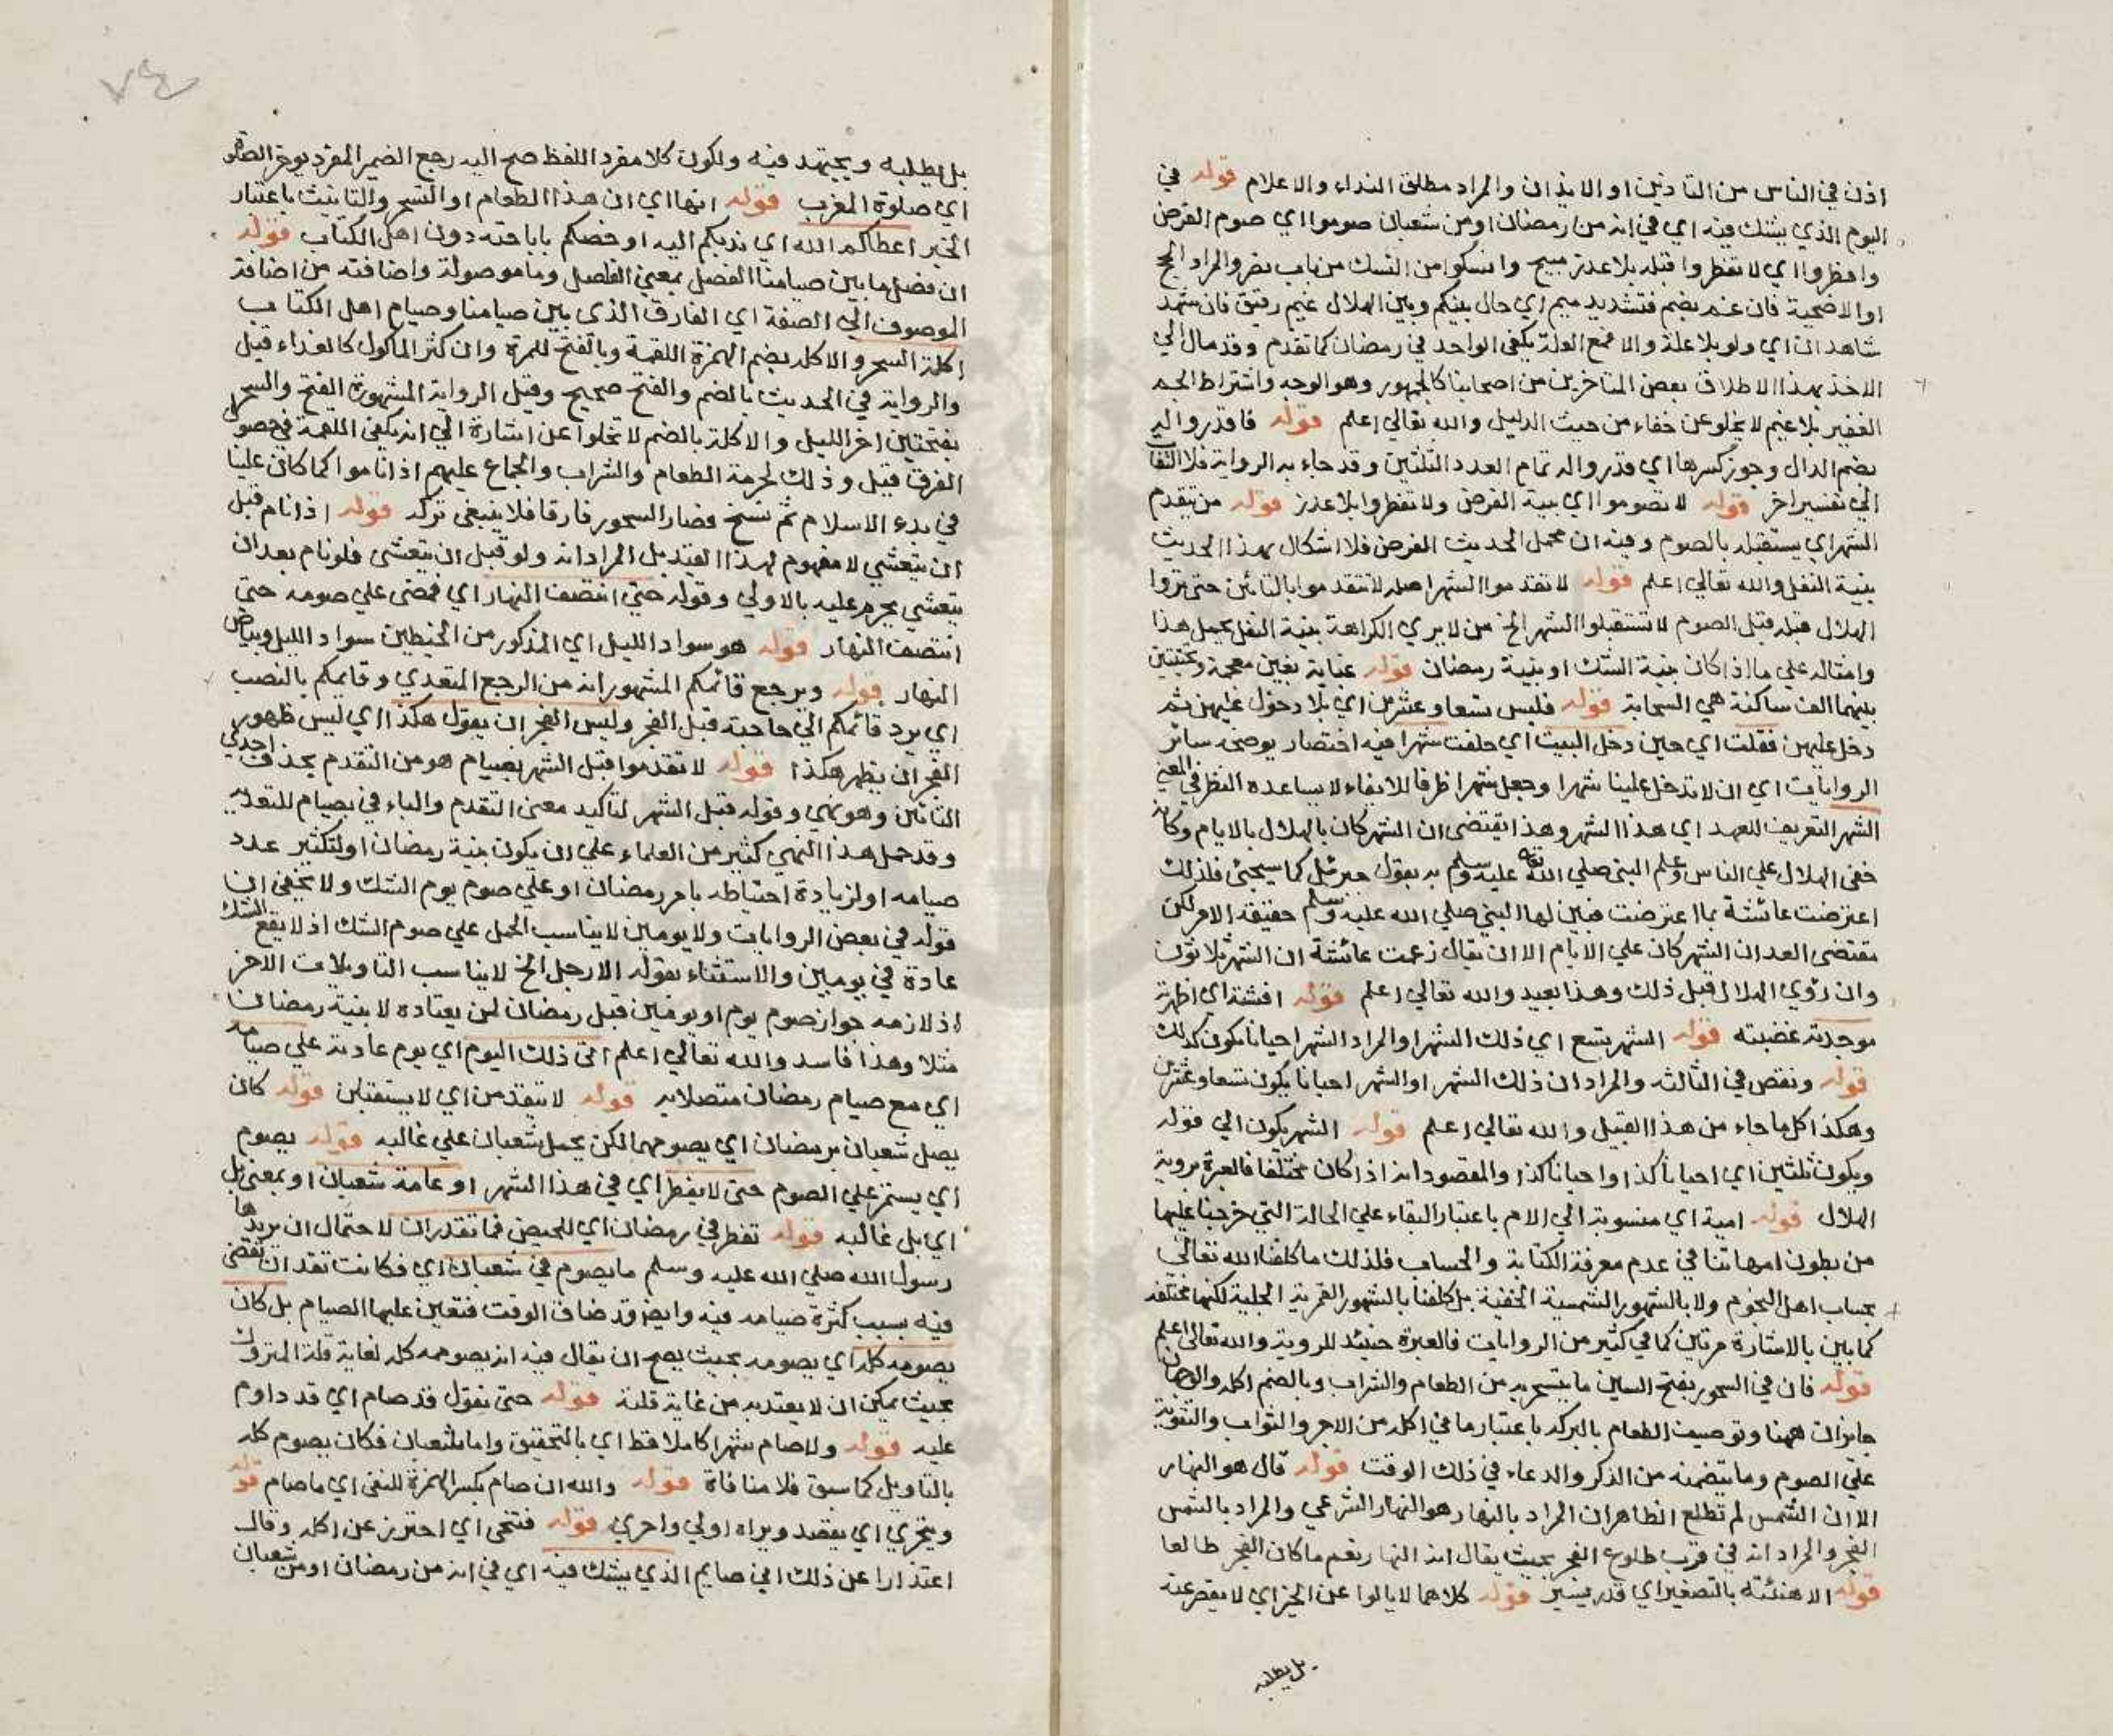 اذن في الناس من التاذين او الايذان والمراد مطلق النداء والاعلام قوله في
اليوم الذي يشك فيه اي في انه من رمضان او من شعبان صوموا اي صوم الفرض
وافطروا اي لا تفطروا قبله بلا عذر مبيح وانسكوا من النسك من باب نصر والمراد الحج
او الاضحية فان غم بضم فتشديد ميم اي حال بينكم وبين الهلال غيم رقيق فان شهد
شاهدان اي ولو بلا علة والا فمع العلة يكفي الواحد في رمضان كما تقدم وقد مال الي
الاخذ بهذا الاطلاق بعض المتاخرين من اصحابنا كالجمهور وهو الوجه واشتراط الجم
الغفير بلا غيم لا يخلو عن خفاء من حيث الدليل والله تعالي اعلم قوله فاقدروا له
بضم الدال وجوز كسرها اي قدروا له تمام العدد الثلثين وقد جاء به الرواية فلا التفات
الي تفسير اخر قوله لا تصوموا اي بنية الفرض ولا تفطروا بلا عذر قوله من تقدم
الشهر اي يستقبله بالصوم وفيه ان محمل الحديث الفرض فلا اشكال بهذا الحديث
بنية النفل والله تعالي اعلم قوله لا تقدموا الشهر اصله لا تتقدموا بالتائين حتى تروا
الهلال قبله قبل الصوم لا تستقبلوا الشهر الخ من لا يري الكراهة بنية النفل يحمل هذا
وامثاله علي ما اذا كان بنية الشك او بنية رمضان قوله غياية بغين معجمة وتحتيتين
بينهما الف ساكنة هي السحابة قوله فلبس تسعا وعشرين اي بلا دخول عليهن ثم
دخل عليهن فقلت اي حين دخل البيت اي حلفت شهرا فيه اختصار يوضحه سائر
الروايات اي ان لا تدخل علينا شهرا وجعل شهرا ظرفا للايفاء لا يساعده النظر في المعني
الشهر التعريف للعهد اي هذا الشهر وهذا يقتضى ان الشهر كان بالهلال لا بالايام وكان
خفى الهلال علي الناس وعلم النبي صلي الله تع عليه وسلم به بقول جبرئيل كما سيجئ فلذلك
اعترضت عائشة بما اعترضت فبين لها النبي صلي الله عليه وسلم حقيقة الامر لكن
مقتضى العد ان الشهر كان علي الايام الا ان يقال زعمت عائشة ان الشهر ثلاثون
وان رؤي الهلال قبل ذلك وهذا بعيد والله تعالي اعلم قوله افشته اي اظهرته
موجدته غضبته قوله الشهر تسع اي ذلك الشهر او المراد الشهر احيانا يكون كذلك
قوله ونقص في الثالثة والمراد ان ذلك الشهر او الشهر احيانا يكون تسعا وعشرين
وهكذا كل ما جاء من هذا القبيل والله تعالي اعلم قوله الشهر يكون الي قوله
ويكون ثلثين اي احيانا كذا واحيانا كذا والمقصود انه اذا كان مختلفا فالعبرة بروية
الهلال قوله امية اي منسوبة الي الام باعتبار البقاء علي الحالة التي خرجنا عليها
من بطون امهاتنا في عدم معرفة الكتابة والحساب فلذلك ما كلفنا الله تعالي
بحساب اهل النجوم ولا بالشهور الشمسية الخفية بل كلفنا بالشهور القمرية الجلية لكنها مختلفة
كما بين بالاشارة مرتين كما في كثير من الروايات فالعبرة حينئذ للروية والله تعالي اعلم
قوله فان في السحور بفتح السين ما يتسحر به من الطعام والشراب وبالضم اكله والوجهان
جايزان ههنا وتوصيف الطعام بالبركة باعتبار ما في اكله من الاجر والثواب والتقوية
علي الصوم وما يتضمنه من الذكر والدعاء في ذلك الوقت قوله قال هو النهار
الا ان الشمس لم تطلع الظاهر ان المراد بالنهار هو النهار الشرعي والمراد بالشمس
الفجر والمراد انه في قرب طلوع الفجر بحيث يقال انه النهار نعم ما كان الفجر طالعا
قوله الا هنيئة بالتصغير اي قدر يسير قوله كلاهما لا يالوا عن الخير اي لا يقصر عنه
بل يطلبه
٧٤
بل يطلبه ويجتهد فيه ولكون كلا مفرد اللفظ صح اليه رجع الضمير المفرد يوخر الصلوة
اي صلوة المغرب قوله انها اي ان هذا الطعام او التسحر والتانيث باعتبار
الخبر اعطاكم الله اي ندبكم اليه او خصكم باباحته دون اهل الكتاب قوله
ان فصل ما بين صيامنا الفصل بمعني الفاصل وما موصولة واضافته من اضافة
الموصوف الي الصفة اي الفارق الذي بين صيامنا وصيام اهل الكتاب
اكلة السحر والاكلة بضم الهمزة اللقمة وبالفتح للمرة وان كثر الماكول كالغداء قيل
والرواية في الحديث بالضم والفتح صحيح وقيل الرواية المشهورة الفتح والسحر
بفتحتين اخر الليل والاكلة بالضم لا تخلوا عن اشارة الي انه يكفي اللقمة في حصول
الفرق قيل وذلك لحرمة الطعام والشراب والجماع عليهم اذا ناموا كما كان علينا
في بدء الاسلام ثم نسخ فصار السحور فارقا فلا ينبغي تركه قوله اذا نام قبل
ان يتعشي لا مفهوم لهذا القيد بل المراد انه ولو قبل ان يتعشى فلو نام بعد ان
يتعشي يحرم عليه بالاولي وقوله حتي انتصف النهار اي فمضى علي صومه حتى
انتصف النهار قوله هو سواد الليل اي المذكور من الخيطين سواد الليل وبياض
النهار قوله ويرجع قائمكم المشهور انه من الرجع المتعدي وقايمكم بالنصب
اي يرد قائمكم الي حاجته قبل الفجر وليس الفجر ان يقول هكذا اي ليس ظهور
الفجر ان يظهر هكذا قوله لا تقدموا قبل الشهر بصيام هو من التقدم بحذف احدي
التائين وهو نهي وقوله قبل الشهر لتاكيد معنى التقدم والباء في بصيام للتعدية
وقد حمل هذا النهي كثير من العلماء علي ان يكون بنية رمضان او لتكثير عدد
صيامه او لزيادة احتياطه بامر رمضان او علي صوم يوم الشك ولا يخفى ان
قوله في بعض الروايات ولا يومين لا يناسب الحمل علي صوم الشك اذ لا يقع الشك
عادة في يومين والاستثناء بقوله الا رجل الخ لا يناسب التاويلات الاخر
اذ لازمه جواز صوم يوم او يومين قبل رمضان لمن يعتاده لا بنية رمضان
مثلا وهذا فاسد والله تعالي اعلم اتى ذلك اليوم اي يوم عادته علي صيامه
اي مع صيام رمضان متصلا به قوله لا يتقدمن اي لا يستقبلن قوله كان
يصل شعبان برمضان اي يصومهما لكن يحمل شعبان علي غالبه قوله يصوم
اي يستمر علي الصوم حتى لا يفطر اي في هذا الشهر او عامة شعبان او بمعنى بل
اي بل غالبه قوله تفطر في رمضان اي للحيض فما تقدر ان لاحتمال ان يريدها
رسول الله صلي الله عليه وسلم ما يصوم في شعبان اي فكانت تقدر ان تقضى
فيه بسبب كثرة صيامه فيه وايضا قد ضاق الوقت فتعين عليها الصيام بل كان
يصومه كله اي يصومه بحيث يصح ان يقال فيه انه يصومه كله لغاية قلة المتروك
بحيث يمكن ان لا يعتد به من غاية قلته قوله حتى نقول قد صام اي قد داوم
عليه قوله ولا صام شهرا كاملا قط اي بالتحقيق واما شعبان فكان يصوم كله
بالتاويل كما سبق فلا منافاة قوله والله ان صام بكسر الهمزة للنفي اي ما صام قوله
ويتحري اي يقصد ويراه اولي واحري قوله فتنحى اي احترز عن اكله وقال
اعتذارا عن ذلك اني صايم الذي يشك فيه اي في انه من رمضان او من شعبان